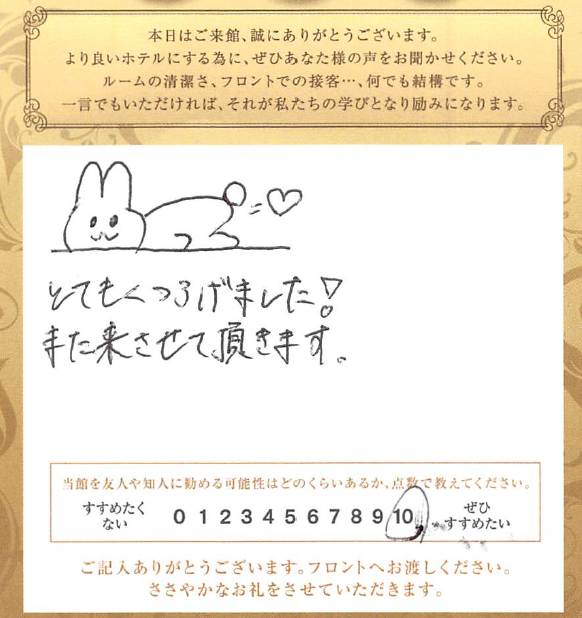 本日はご来館、誠にありがとうございます。
より良いホテルにする為に、ぜひあなた様の声をお聞かせください。
ルームの清潔さ、フロントでの接客…、何でも結構です。
一言でもいただければ、それが私たちの学びとなり励みになります。
とてもくつろげました!
また来させて頂きます。
当館を友人や知人に勧める可能性はどのくらいあるか、点数で教えてください。
すすめたく
ない
0 1 2 3 4 5 6 7 8 9 10
ぜひ
すすめたい
ご記入ありがとうございます。フロントへお渡しください。
ささやかなお礼をさせていただきます。